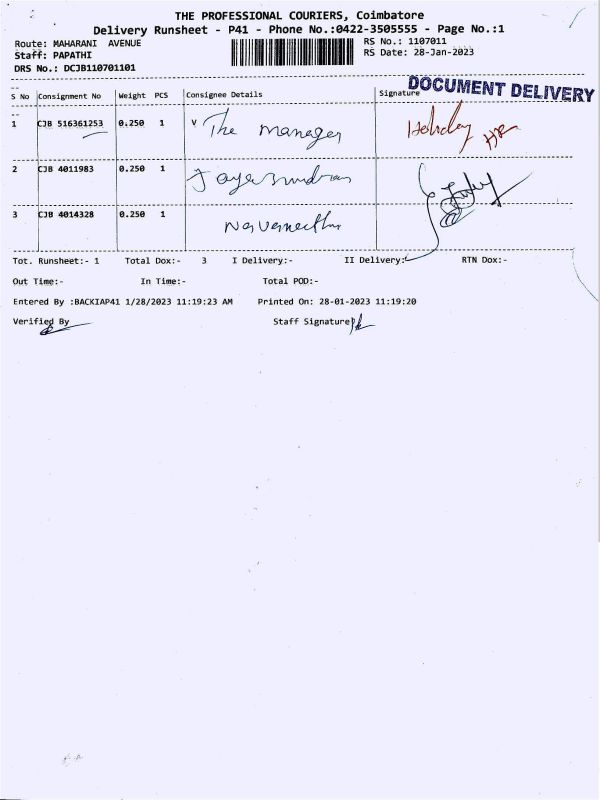 THE PROFESSIONAL COURIERS, Coimbatore
Delivery Runsheet - P41 - Phone No.:0422-3505555 - Page No.:1
Route: MAHARANI AVENUE
RS No.: 1107011
Staff: PAPATHI
RS Date: 28-Jan-2023
DRS No.: DCJB110701101
DOCUMENT DELIVERY
S No Consignment No Weight PCS Consignee Details Signature
1 CJB 516361253 0.250 1 V The manager Holiday
2 CJB 4011983 0.250 1
3 CJB 4014328 0.250 1
Tot. Runsheet:- 1 Total Dox:- 3 I Delivery:- II Delivery:- RTN Dox:-
Out Time:- In Time:- Total POD:-
Entered By :BACKIAP41 1/28/2023 11:19:23 AM Printed On: 28-01-2023 11:19:20
Verified By Staff Signature